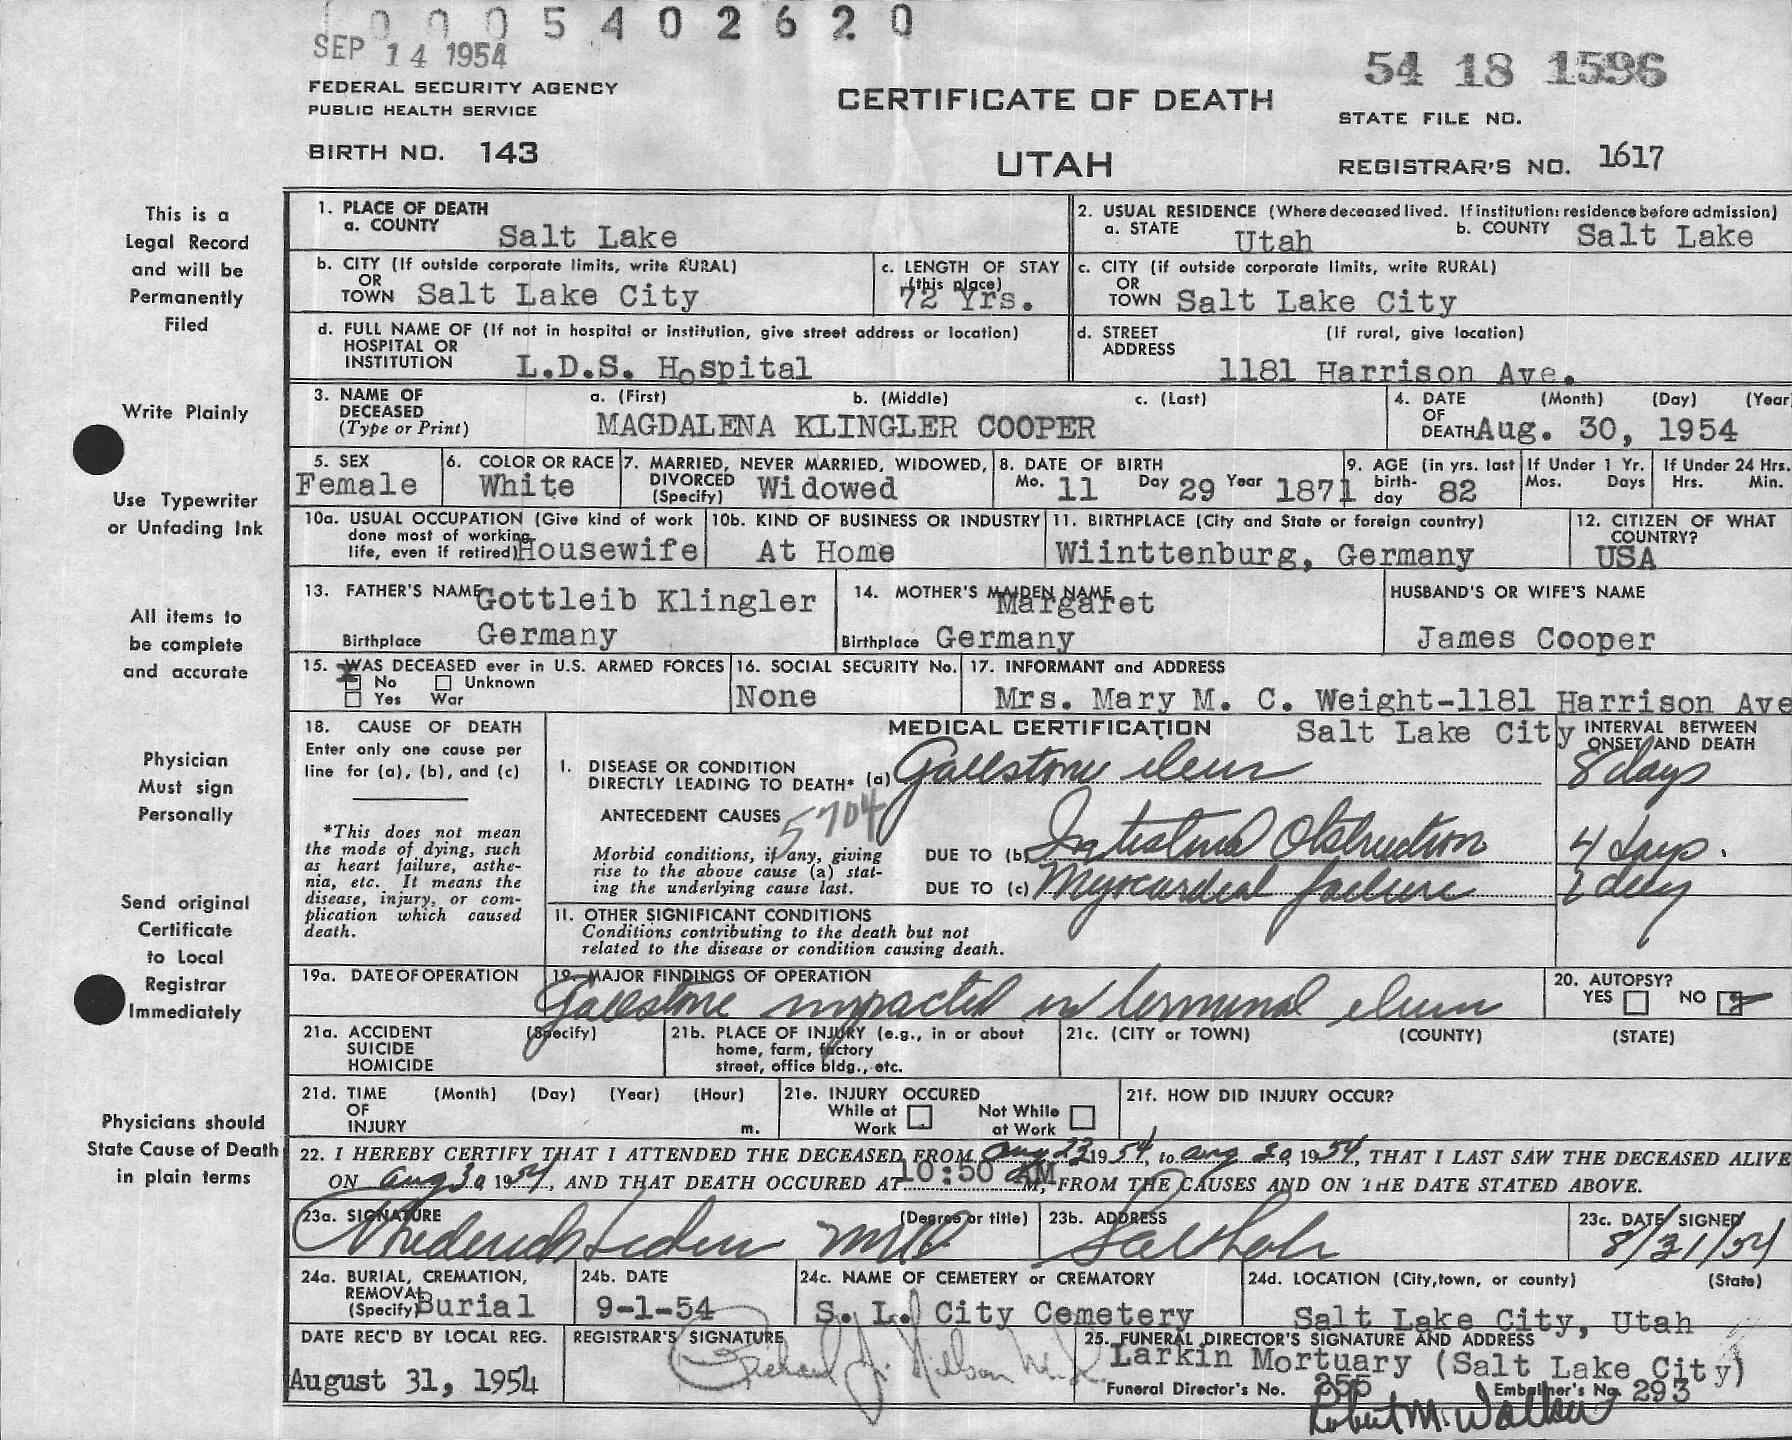 0005402620
SEP 14 1954
54 18 1596
FEDERAL SECURITY AGENCY
PUBLIC HEALTH SERVICE
CERTIFICATE OF DEATH
STATE FILE NO.
BIRTH NO. 143
UTAH
REGISTRAR'S NO. 1617
This is a
Legal Record
and will be
Permanently
Filed
Write Plainly
Use Typewriter
or Unfading Ink
All items to
be complete
and accurate
Physician
Must sign
Personally
Send original
Certificate
to Local
Registrar
Immediately
Physicians should
State Cause of Death
in plain terms
1. PLACE OF DEATH
a. COUNTY Salt Lake
2. USUAL RESIDENCE (Where deceased lived. If institution: residence before admission)
a. STATE Utah b. COUNTY Salt Lake
b. CITY (If outside corporate limits, write RURAL)
OR
TOWN Salt Lake City
c. LENGTH OF STAY
(this place)
72 Yrs.
c. CITY (if outside corporate limits, write RURAL)
OR
TOWN Salt Lake City
d. FULL NAME OF (If not in hospital or institution, give street address or location)
HOSPITAL OR
INSTITUTION L.D.S. Hospital
d. STREET (If rural, give location)
ADDRESS
1181 Harrison Ave.
3. NAME OF a. (First) b. (Middle) c. (Last)
DECEASED
(Type or Print) MAGDALENA KLINGLER COOPER
4. DATE (Month) (Day) (Year
OF
DEATH Aug. 30, 1954
5. SEX
Female
6. COLOR OR RACE
White
7. MARRIED, NEVER MARRIED, WIDOWED,
DIVORCED
(Specify) Widowed
8. DATE OF BIRTH
Mo. 11 Day 29 Year 1871
9. AGE (in yrs. last
birth-
day 82
If Under 1 Yr.
Mos. Days
If Under 24 Hrs.
Hrs. Min.
10a. USUAL OCCUPATION (Give kind of work
done most of working
life, even if retired) Housewife
10b. KIND OF BUSINESS OR INDUSTRY
At Home
11. BIRTHPLACE (City and State or foreign country)
Wiinttenburg, Germany
12. CITIZEN OF WHAT
COUNTRY?
USA
13. FATHER'S NAME Gottleib Klingler
Birthplace Germany
14. MOTHER'S MAIDEN NAME
Margaret
Birthplace Germany
HUSBAND'S OR WIFE'S NAME
James Cooper
15. WAS DECEASED ever in U.S. ARMED FORCES
No Unknown
Yes War
16. SOCIAL SECURITY No.
None
17. INFORMANT and ADDRESS
Mrs. Mary M. C. Weight-1181 Harrison Ave
Salt Lake City
18. CAUSE OF DEATH
Enter only one cause per
line for (a), (b), and (c)
*This does not mean
the mode of dying, such
as heart failure, asthe-
nia, etc. It means the
disease, injury, or com-
plication which caused
death.
MEDICAL CERTIFICATION
INTERVAL BETWEEN
ONSET AND DEATH
I. DISEASE OR CONDITION
DIRECTLY LEADING TO DEATH* (a) Gallstone ileus 8 days
ANTECEDENT CAUSES 5704
Morbid conditions, if any, giving
rise to the above cause (a) stat-
ing the underlying cause last.
DUE TO (b) Intestinal Obstruction 4 days.
DUE TO (c) Myocardial failure 1 day
II. OTHER SIGNIFICANT CONDITIONS
Conditions contributing to the death but not
related to the disease or condition causing death.
19a. DATE OF OPERATION
19. MAJOR FINDINGS OF OPERATION
Gallstone impacted in terminal ileum
20. AUTOPSY?
YES NO
21a. ACCIDENT (Specify)
SUICIDE
HOMICIDE
21b. PLACE OF INJURY (e.g., in or about
home, farm, factory
street, office bldg., etc.
21c. (CITY or TOWN) (COUNTY) (STATE)
21d. TIME (Month) (Day) (Year) (Hour)
OF
INJURY m.
21e. INJURY OCCURED
While at Work
Not While at Work
21f. HOW DID INJURY OCCUR?
22. I HEREBY CERTIFY THAT I ATTENDED THE DECEASED FROM Aug 23 1954, to Aug 30, 1954, THAT I LAST SAW THE DECEASED ALIVE
ON Aug 30 1954, AND THAT DEATH OCCURED AT 10:50 AM, FROM THE CAUSES AND ON THE DATE STATED ABOVE.
23a. SIGNATURE (Degree or title)
MD
23b. ADDRESS
Salt Lake
23c. DATE SIGNED
8/31/54
24a. BURIAL, CREMATION,
REMOVAL
(Specify) Burial
24b. DATE
9-1-54
24c. NAME OF CEMETERY or CREMATORY
S. L. City Cemetery
24d. LOCATION (City, town, or county) (State)
Salt Lake City, Utah
DATE REC'D BY LOCAL REG.
August 31, 1954
REGISTRAR'S SIGNATURE
Richard J. Nelson M.D.
25. FUNERAL DIRECTOR'S SIGNATURE AND ADDRESS
Larkin Mortuary (Salt Lake City)
Funeral Director's No. 255 Embalmer's No. 293
Robert M. Walker